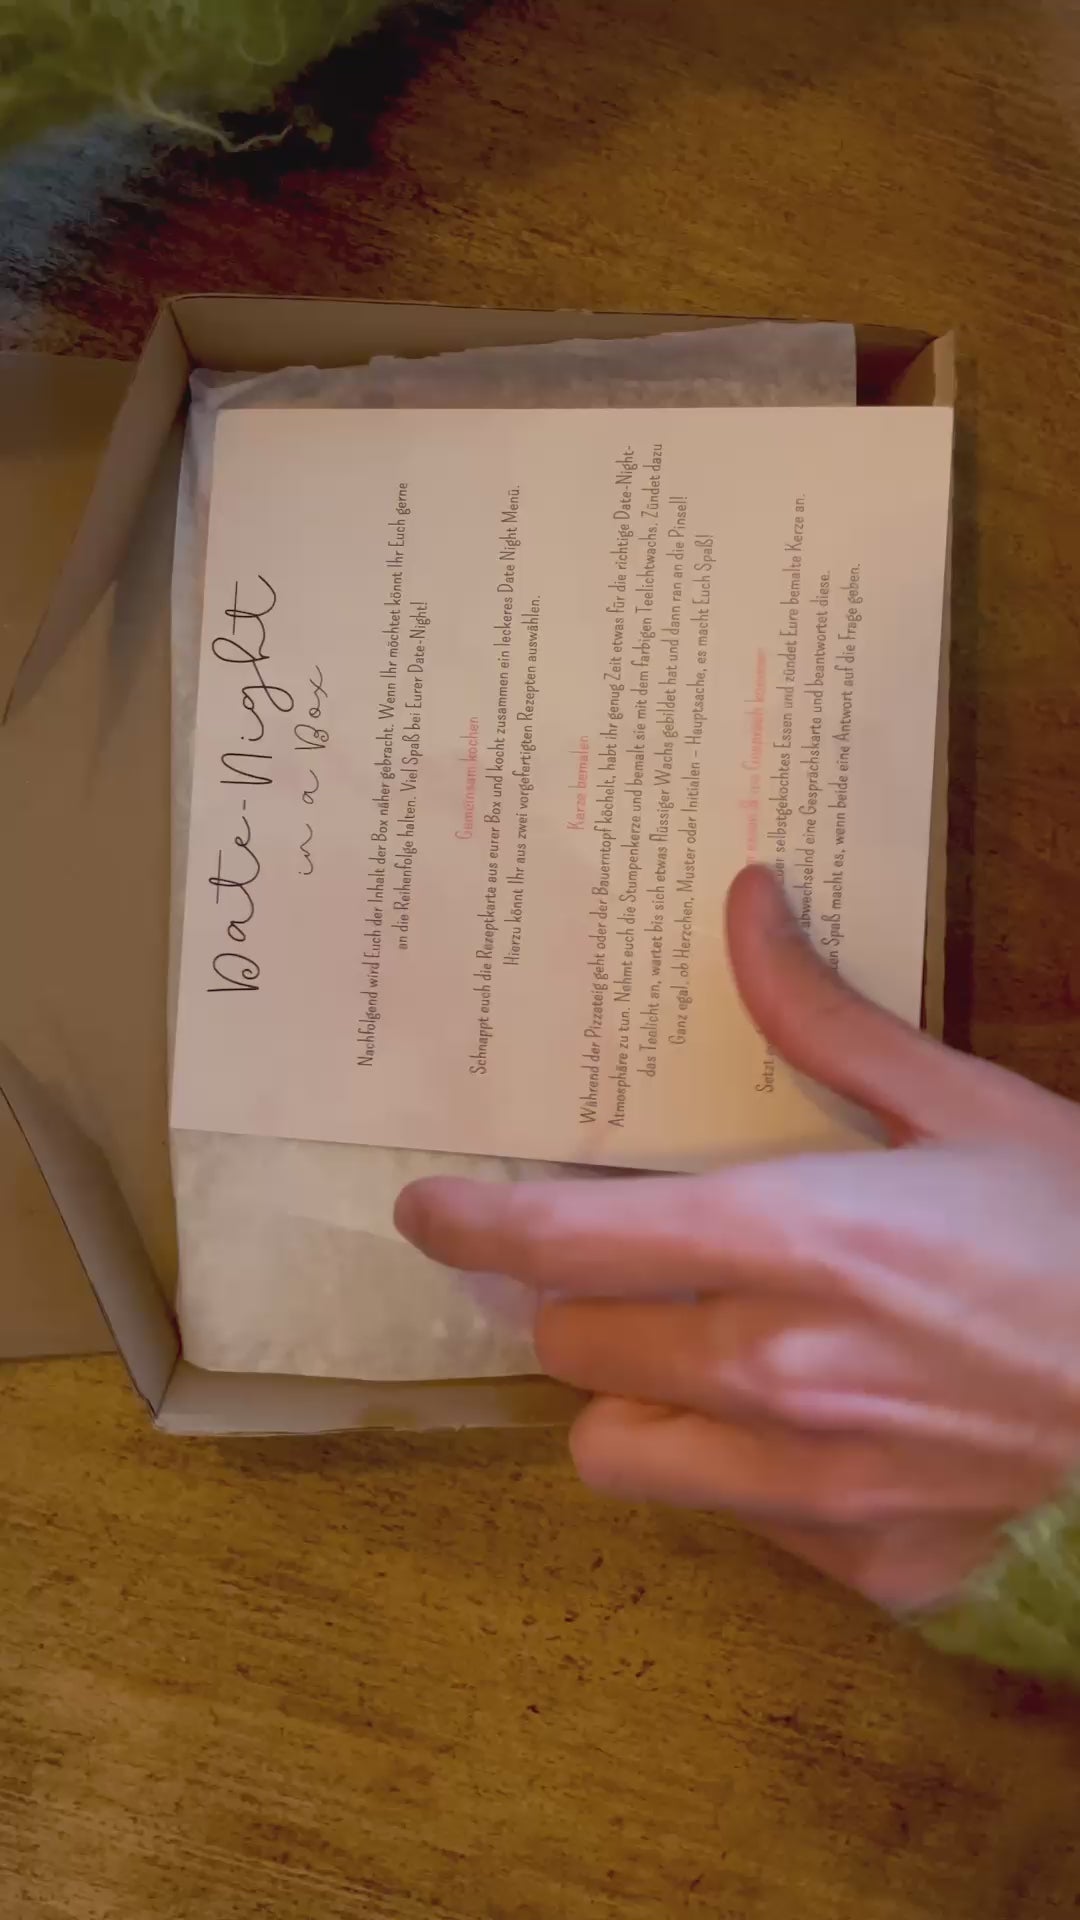 Date-Night
in a Box
Nachfolgend wird Euch der Inhalt der Box näher gebracht. Wenn Ihr möchtet könnt Ihr Euch gerne
an die Reihenfolge halten. Viel Spaß bei Eurer Date-Night!
Gemeinsam kochen
Schnappt euch die Rezeptkarte aus eurer Box und kocht zusammen ein leckeres Date Night Menü.
Hierzu könnt Ihr aus zwei vorgefertigten Rezepten auswählen.
Kerze bemalen
Während der Pizzateig geht oder der Bauerntopf köchelt, habt ihr genug Zeit etwas für die richtige Date-Night-
Atmosphäre zu tun. Nehmt euch die Stumpenkerze und bemalt sie mit dem farbigen Teelichtwachs. Zündet dazu
das Teelicht an, wartet bis sich etwas flüssiger Wachs gebildet hat und dann ran an die Pinsel!
Ganz egal, ob Herzchen, Muster oder Initialen – Hauptsache, es macht Euch Spaß!
essen & ins Gespräch kommen
Setzt selbstgekochtes Essen und zündet Eure bemalte Kerze an.
abwechselnd eine Gesprächskarte und beantwortet diese.
Spaß macht es, wenn beide eine Antwort auf die Frage geben.